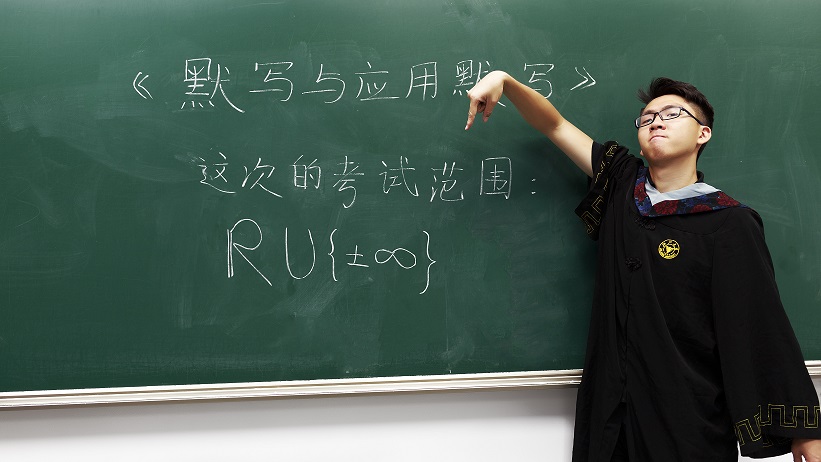 《默写与应用默写》
这次的考试范围：
R∪{±∞}